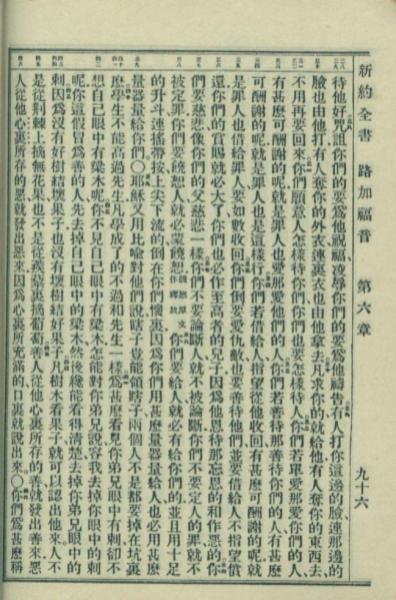 新約全書 路加福音 第六章 九十六
待他好、咒詛你們的要爲他祝福、凌辱你們的要爲他禱告○有人打你這邊的臉、連那邊的
臉也由他打有人奪你的外衣連裏衣也由他拿去凡求你的就給他有人奪你的東西去、
不用再要回來你們願意人怎樣待你們你們也要怎樣待人你們若單愛那愛你們的人、
有甚麽可酬謝的呢就是罪人也愛那愛他們的人你們若善待那善待你們的人有甚麽
可酬謝的呢就是罪人也是這樣行你們若借給人指望從他收回有甚麽可酬謝的呢就
是罪人也借給罪人要如數收回你們倒要愛仇敵也要善待他們並要借給人不指望償
還你們的賞賜就必大了你們也必作至高者的兒子因爲他恩待那忘恩的和作惡的你
們要慈悲像你們的父慈悲一樣你們不要論斷人就不被論斷你們不要定人的罪就不
被定罪你們要饒恕人就必蒙饒恕饒恕原文作釋放你們要給人就必有給你們的並且用十足
的升斗連搖帶按上尖下流的倒在你們懷裏因爲你們用甚麽量器量給人也必用甚麽
量器量給你們○耶穌又用比喻對他們說瞎子豈能領瞎子兩個人不是都要掉在坑裏
麽學生不能高過先生凡學成了的不過和先生一樣爲甚麽看見你弟兄眼中有刺卻不
想自己眼中有梁木呢你不見自己眼中有梁木怎能對你弟兄說容我去掉你眼中的刺
呢你這假冒爲善的人先去掉自己眼中的梁木然後纔能看得清楚去掉你弟兄眼中的
刺因爲沒有好樹結壞果子也沒有壞樹結好果子凡樹木看果子就可以認出他來人不
是從荊棘上摘無花果也不是從蒺藜裏摘葡萄善人從他心裏所存的善就發出善來惡
人從他心裏所存的惡就發出惡來因爲心裏所充滿的口裏就說出來○你們爲甚麽稱